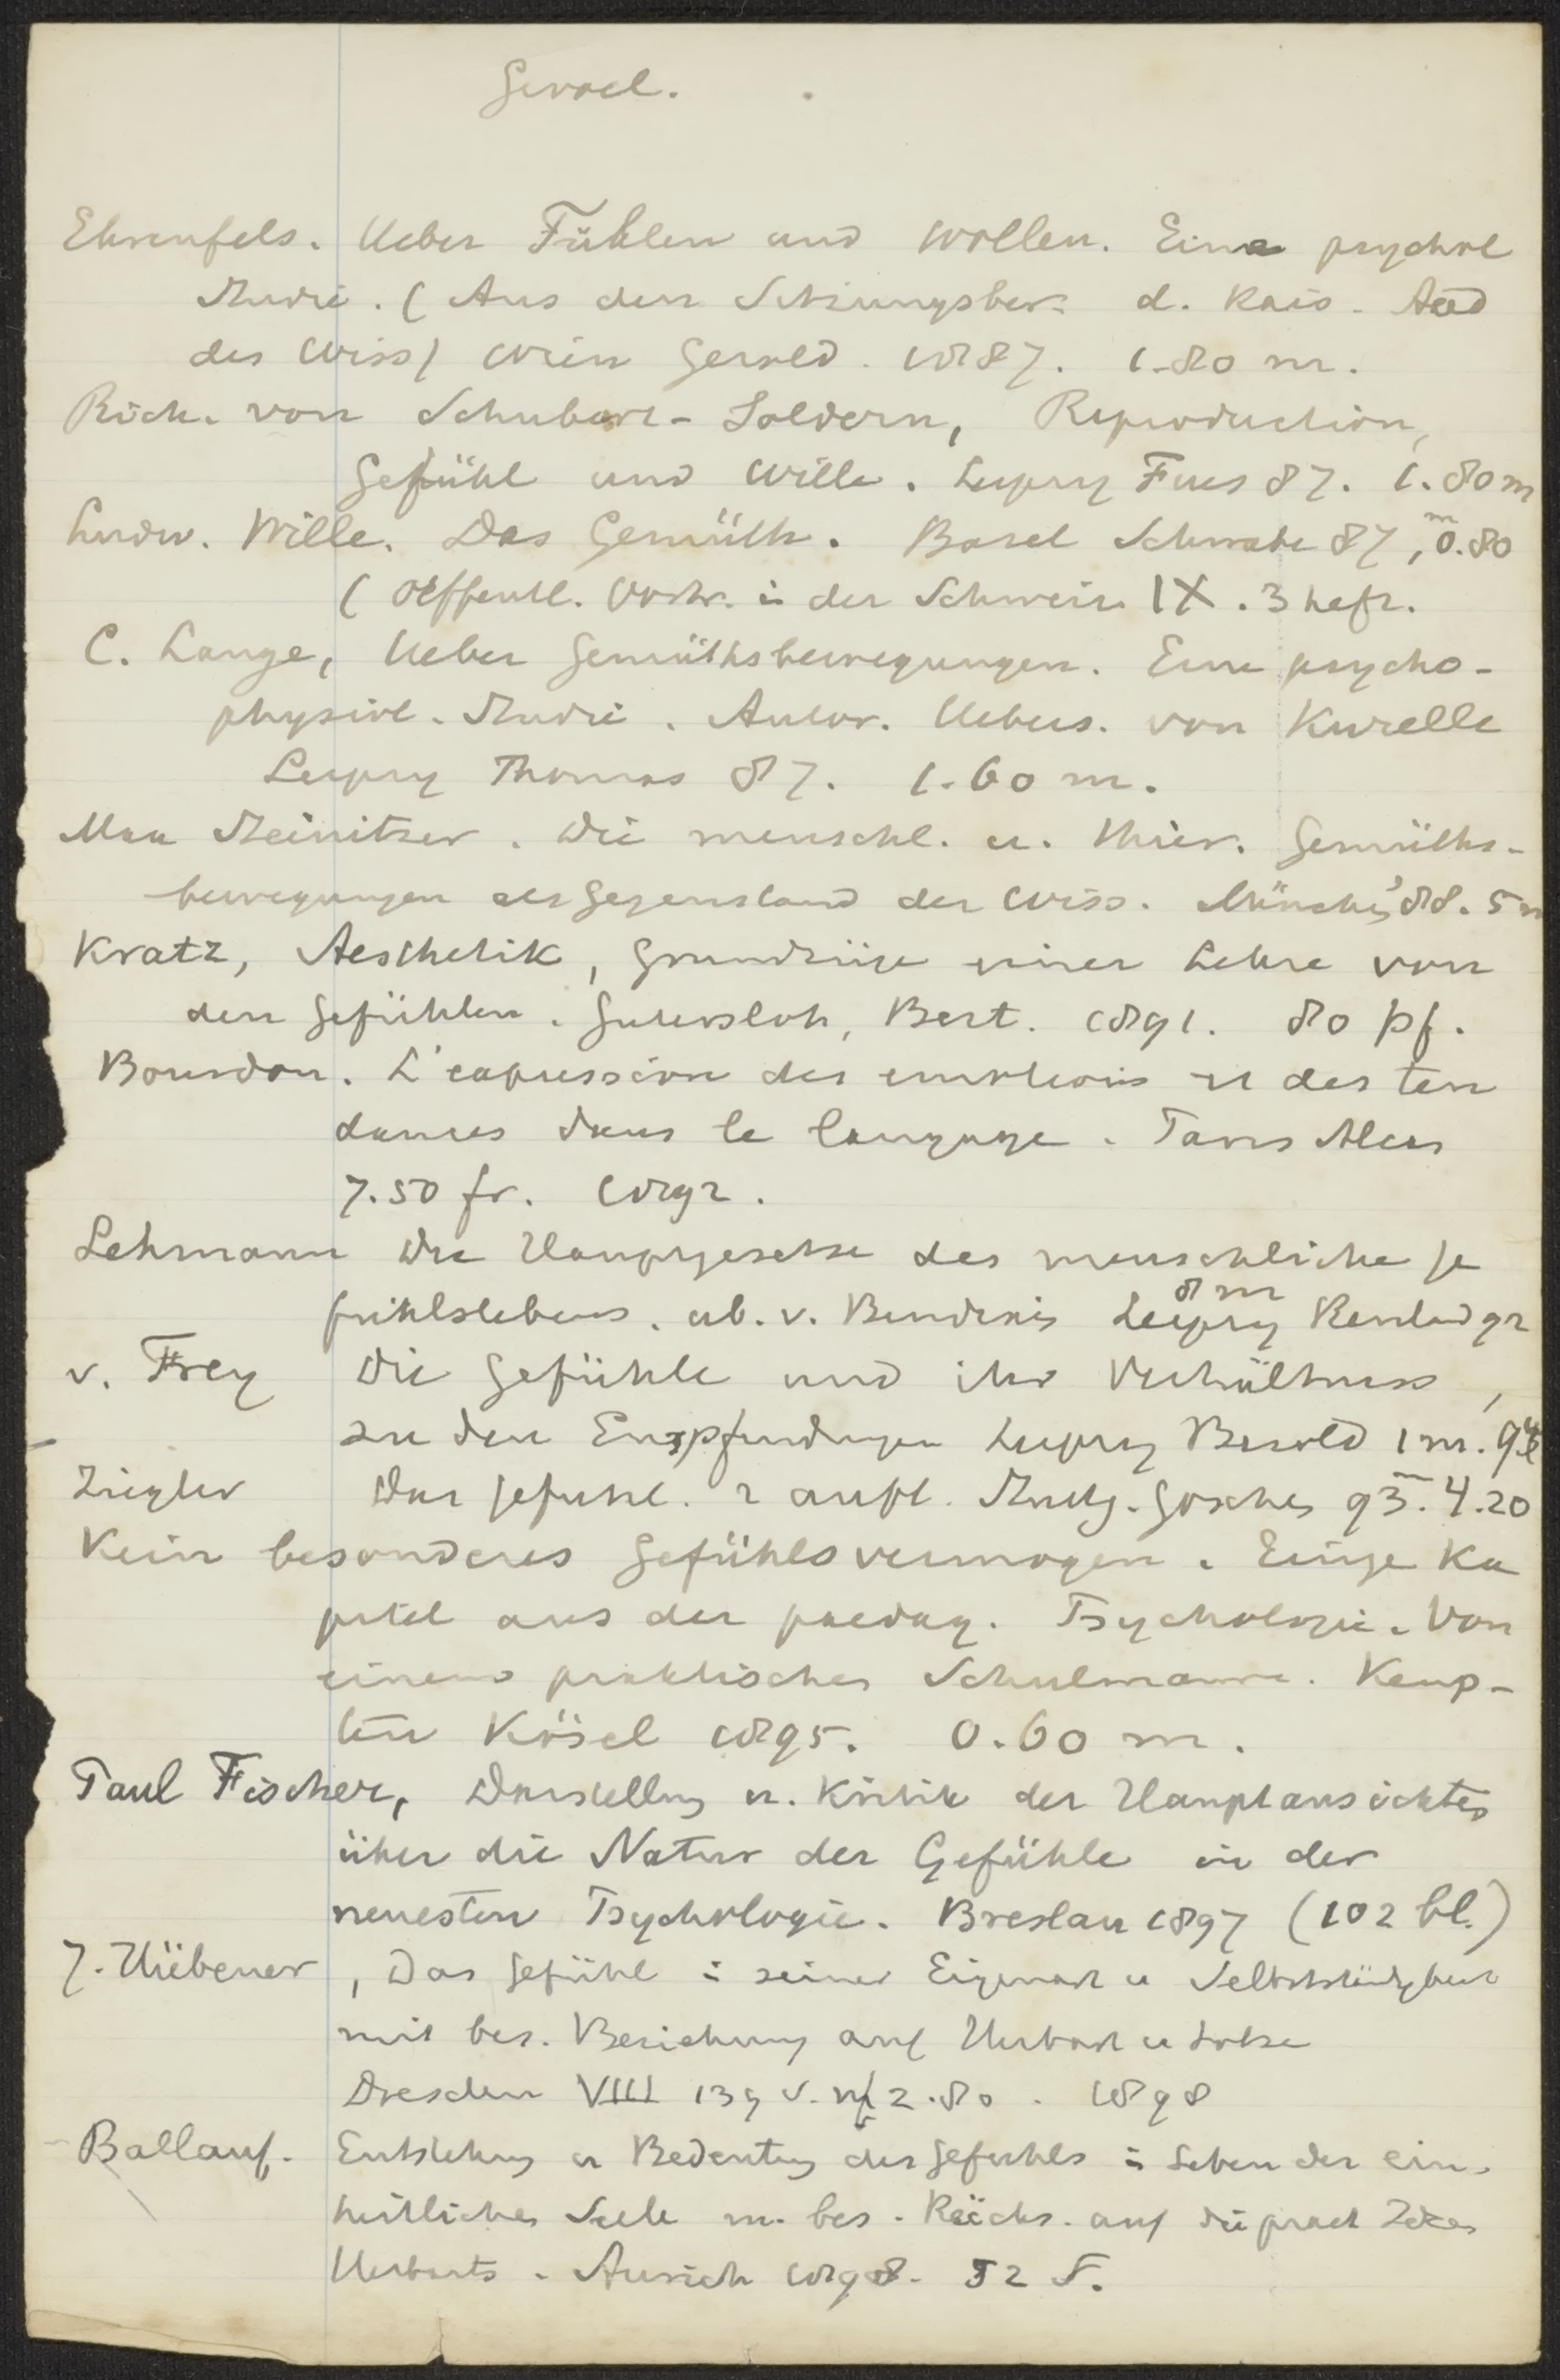 Gevoel.
Ehrenfels. Ueber Fühlen und Wollen. Eine psychol
Studie. (Aus den Sitzungsber. d. Kais. Acad
der Wiss) Wien Gerold. 1887. 1.80 m.
Rich. von Schubert-Soldern, Reproduction,
Gefühl und Wille. Leipzig Fues 87. 1.80 m
Ludw. Wille. Das Gemüth. Basel Schwabe 87, 0.80 m
(Oeffentl. Vortr. i der Schweiz IX. 3 heft.
C. Lange, Ueber Gemüthsbewegungen. Eine psycho-
physiol. Studie. Autor. Uebers. von Kurella
Leipzig Thomas 87. 1.60 m.
Max Steinitzer. Die menschl. u. thier. Gemüths-
bewegungen als Gegenstand der Wiss. München '88. 5 m
Kratz, Aesthetik, Grundzüge einer Lehre von
den Gefühlen. Gutersloh, Bert. 1891. 80 pf.
Bourdon. L'expression des emotions et des ten
dances dans le langage. Paris Alcan
7.50 fr. 1892.
Lehmann Die Hauptgesetze des menschliche Ge
fühlslebens. ub. v. Bendixen Leipzig Reisland 92 8 m
v. Frey Die Gefühle und ihr Verhältniss
zu den Empfindungen Leipzig Besold 1 m. 94
Ziegler Das Gefuhl. 2 aufl. Stuttg. Goschen 93. 4.20 m
Kein besonderes Gefühlsvermogen. Einige Ka
pitel aus der paedag. Psychologie. Von
einem praktischen Schulmanne. Kemp-
ten Kösel 1895. 0.60 m.
Paul Fischer, Darstellung u. Kritik der Hauptansichten
über die Natur der Gefühle in der
neuesten Psychologie. Breslau 1897 (102 bl.)
J. Hübener, Das Gefühl i seiner Eigenart u Selbstständigkeit
mit bes. Beziehung auf Herbart u Lotze
Dresden VIII 139 S. M 2.80. 1898
Ballauf. Entstehung u Bedeutung des Gefuhls i Leben der ein-
heitlichen Seele m. bes. Rücks. auf die pract Ideen
Herbarts. Aurich 1898. 52 S.